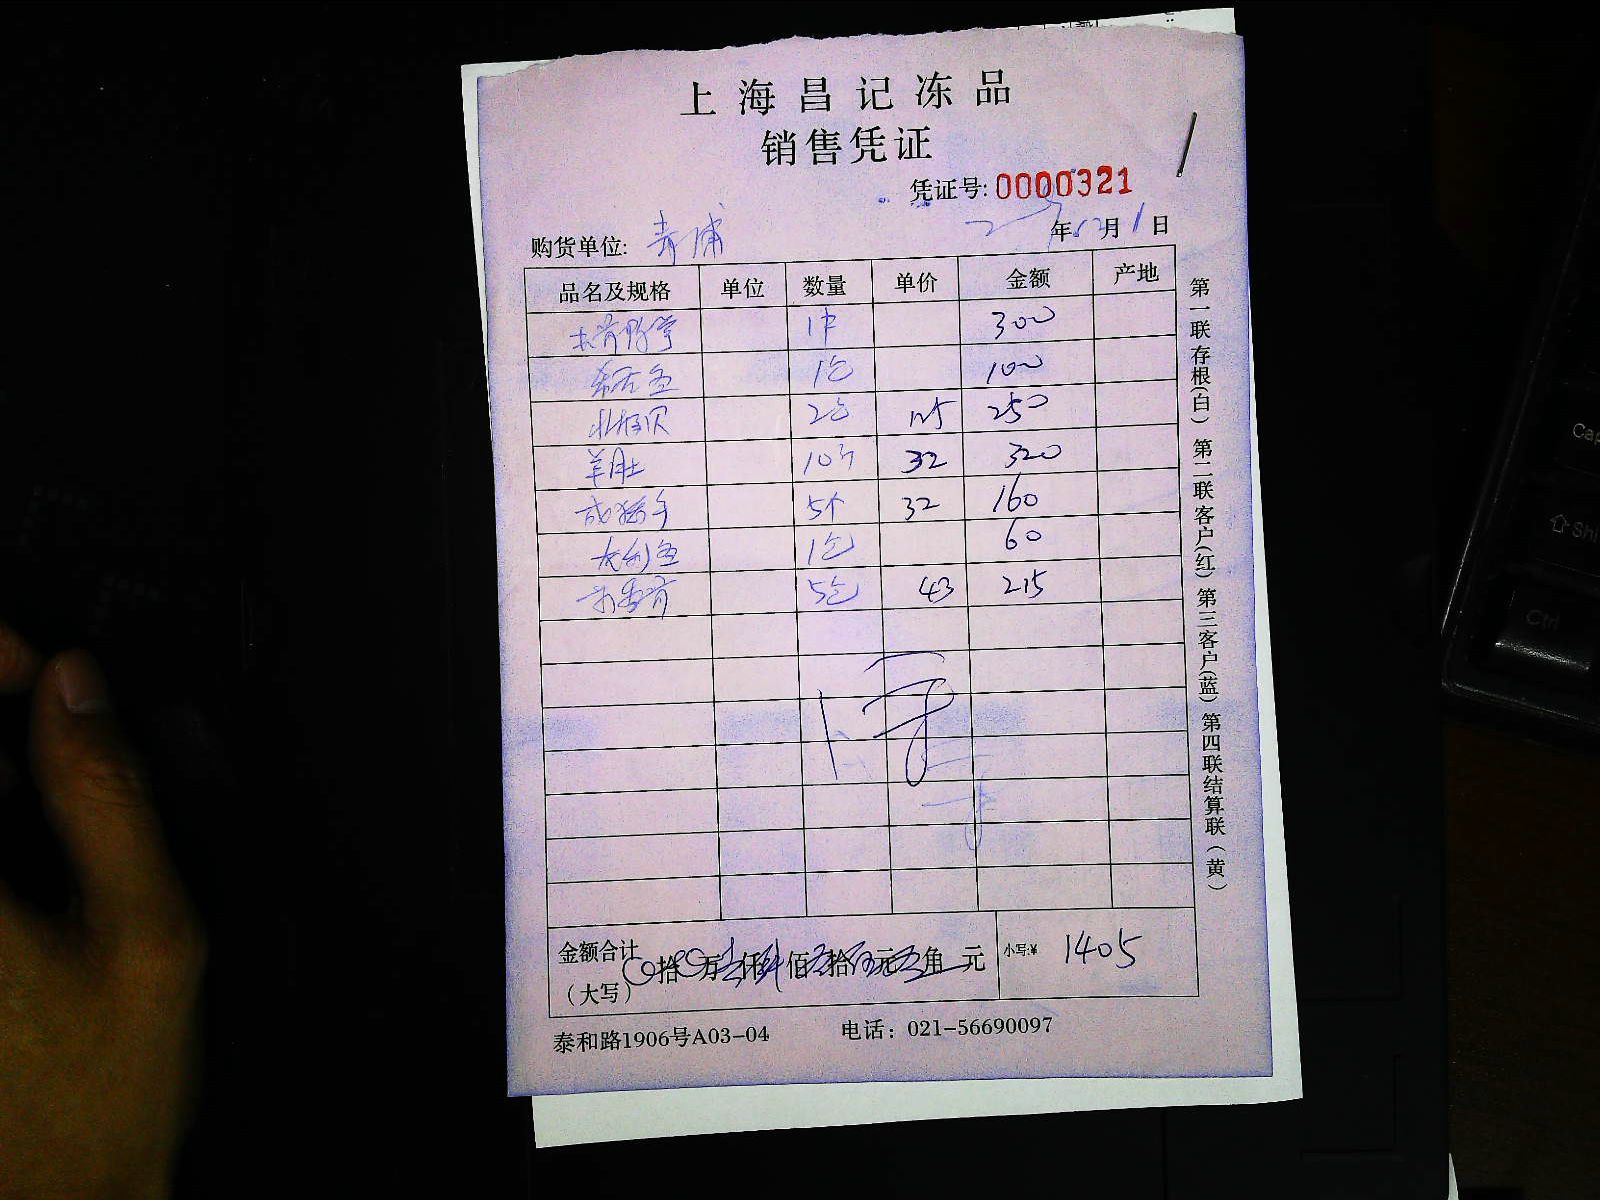 上海昌记冻品
销售凭证
凭证号: 0000321
购货单位: 青浦 年12月1日
品名及规格 单位 数量 单价 金额 产地
1件 300
希右鱼 1包 100
北极贝 2包 125 250
羊肚 10个 32 320
5个 32 160
1包 60
5包 43 215
金额合计 (大写) 拾 万 仟 佰 拾 元 角 元 小写:¥ 1405
泰和路1906号A03-04 电话: 021-56690097
第一联存根(白) 第二联客户(红) 第三客户(蓝) 第四联结算联(黄)
Ctrl